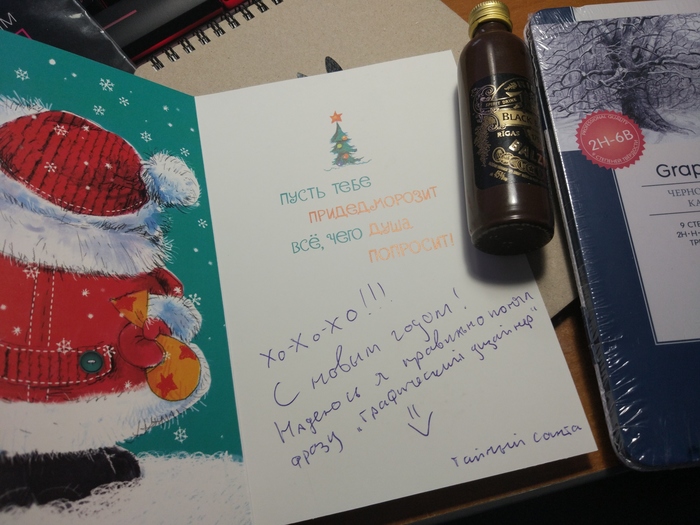 ПУСТЬ ТЕБЕ
ПРИДЕДМОРОЗИТ
ВСЁ, ЧЕГО ДУША
ПОПРОСИТ!
Хо-Хо-Хо!!!
С новым годом!
Надеюсь я правильно понял
фразу "Графический дизайнер"
Тайный Санта
BLACK
RĪGAS
2H-6B
Grap
ЧЕРНО
КА
9 СТЕ
2H-H-
ТР